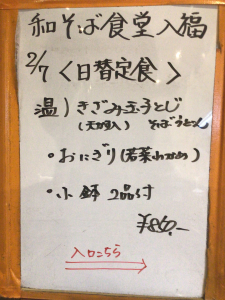 和そば食堂 入福
2/7 〈日替定食〉
温) きざみ玉子とじ
(天カス入) そばうどん
・おにぎり(若菜わかめ)
・小鉢 2品付
¥860.-
入口こちら